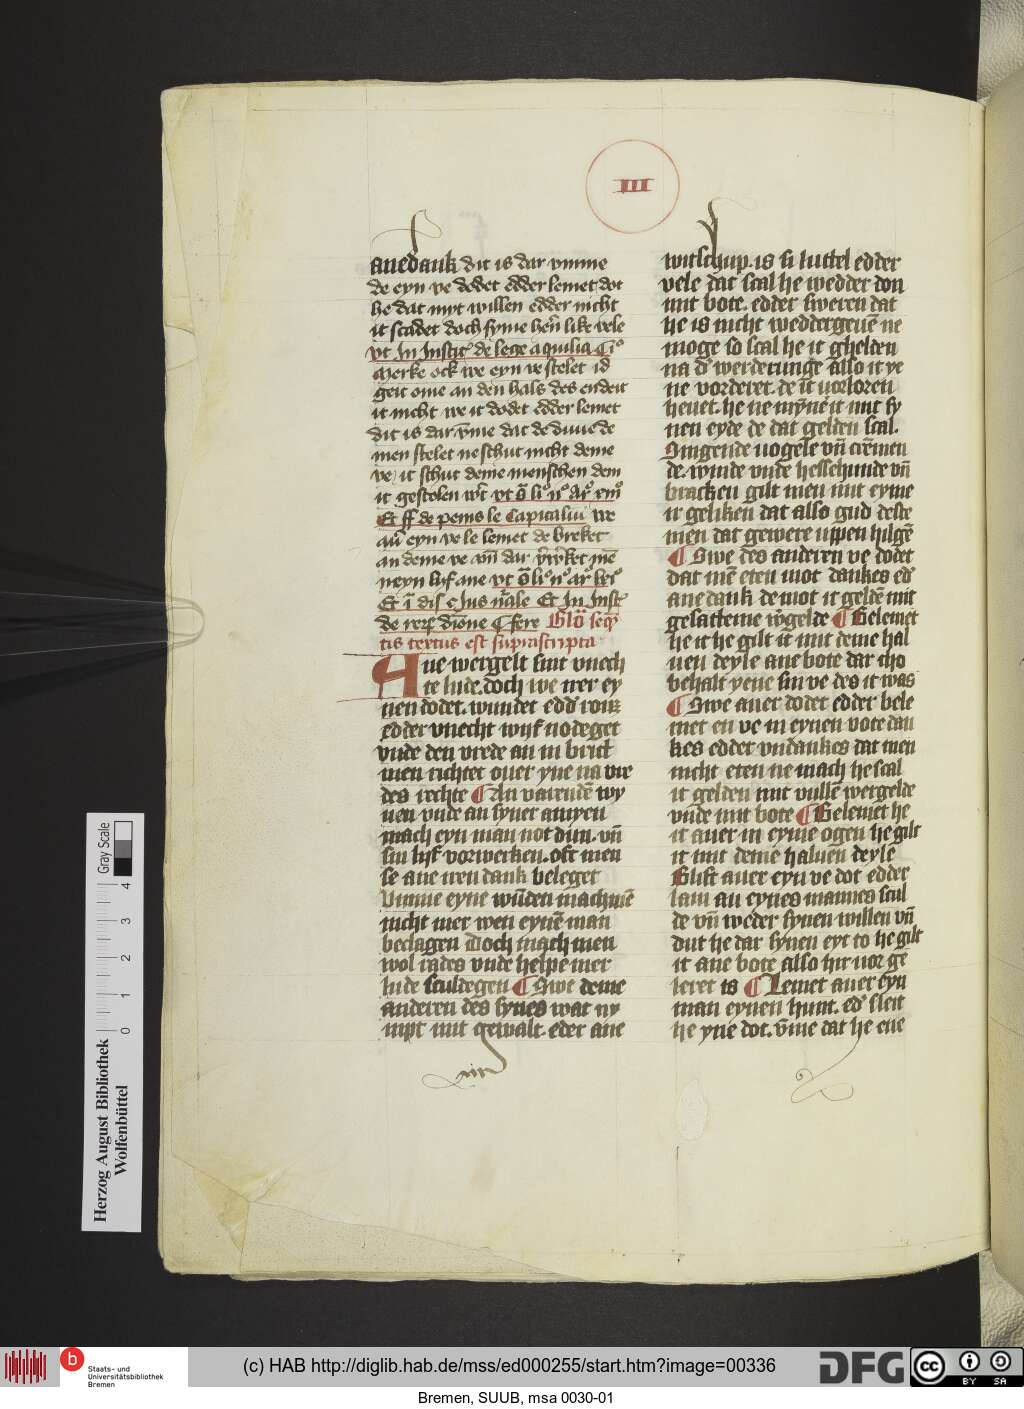 III
anedank dit is dar vmme
de eyn ve dodet edder lemet dot
he dat myt willen edder nicht
it scadet doch syme hern like vele
vt In Instit de lege aquilia
Merke ock we eyn ve stelet id
geit ome an den hals des endeit
it nicht we it dodet edder lemet
dit is dar vme dat de duue de
men stelet ne schut nicht deme
ve it schut deme menschen dem
it gestolen wert vt
Et ff de penis le Capitaliu we
auer eyn ve le lemet de breket
an deme ve
neyn lyf ane vt
Et Jus nale Et In Inst
de rerum dione fere Glo seq
tis textus est suprascripta
Ane wergelt sint vnech
te lude. doch we orer ey
nen dodet. wundet edder
edder vnecht wyf nodeget
vnde den vrede an in brict
men richtet ouer yne na vre
des rechte ¶ An varendē wy
uen vnde an syner amyen
mach eyn man not dun. vn̄
sin lyf vorwerken. oft men
se ane eren dank beleget
Vmme eyne wūden mach mē
nicht mer wen eynē man
beclagen Doch mach men
wol rades vnde helpe mer
lude sculdegen ¶ Swe deme
anderen des synes wat ny
mpt mit gewalt. eder ane
witschup. is it luttel edder
vele dat scal he wedder don
mit bote. edder sweren dat
he is nicht weddergeuē ne
moge so scal he it ghelden
na der werderunge also it ye
ne vorderet. de it vorloren
heuet. he ne mynne it mit sy
nen eyde de dat gelden scal.
Singende uogele vn̄ cremen
de. winde vnde hesschunde vn̄
bracken gilt men mit eyme
ir geliken dat also gud deste
men dat gewere uppen hilgē
¶ Swe des anderen ve dodet
dat mē eten mot dankes ed
ane dank de mot it geldē mit
gesatteme wergelde ¶ Belemet
he it he gilt it mit deme hal
uen deyle ane bote dar tho
behalt yene sin ve des it was
¶ Swe auer dodet edder bele
met en ve in eynen vote dan
kes edder vndankes dat men
nicht eten ne mach he scal
it gelden mit vullē wergelde
vnde mit bote ¶ Belemet he
it auer in eyme ogen he gilt
it mit deme haluen deyle
Blift auer eyn ve dot edder
lam an eynes mannes scul
de vn̄ weder synen willen vn̄
dut he dar synen eyt to he gilt
it ane bote also hir uor ge
leret is ¶ Lemet auer eyn
man eynen hunt. ed sleit
he yne dot. vme dat he ene
Gray Scale
0 1 2 3 4
Herzog August Bibliothek
Wolfenbüttel
b
Staats- und
Universitätsbibliothek
Bremen
(c) HAB http://diglib.hab.de/mss/ed000255/start.htm?image=00336
DFG
cc BY SA
Bremen, SUUB, msa 0030-01